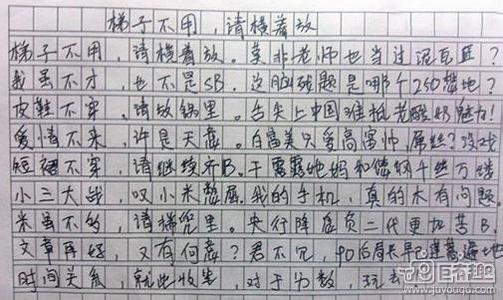 梯子不用,请横着放
梯子不用,请横着放。莫非老师也当过泥瓦匠?
我虽不才,也不是SB。这脑残题是哪个250想地?
皮鞋不穿,请放锅里。舌尖上中国谁抵老酸奶魅力!
爱情不来,许是天意。白富美只爱高富帅,屌丝?没戏
短裙不穿,请继续齐B。干露露她妈和
小三大战,叹小米憋屈。我的手机,真的木有问题。
米虽不多,请梯兜里。央行降息负二代更加苦B。
文章再好,又有何意?君不见,90后周
时间关系,就此收笔,对于分数,玩
中国日报网
www.juyouqu.com